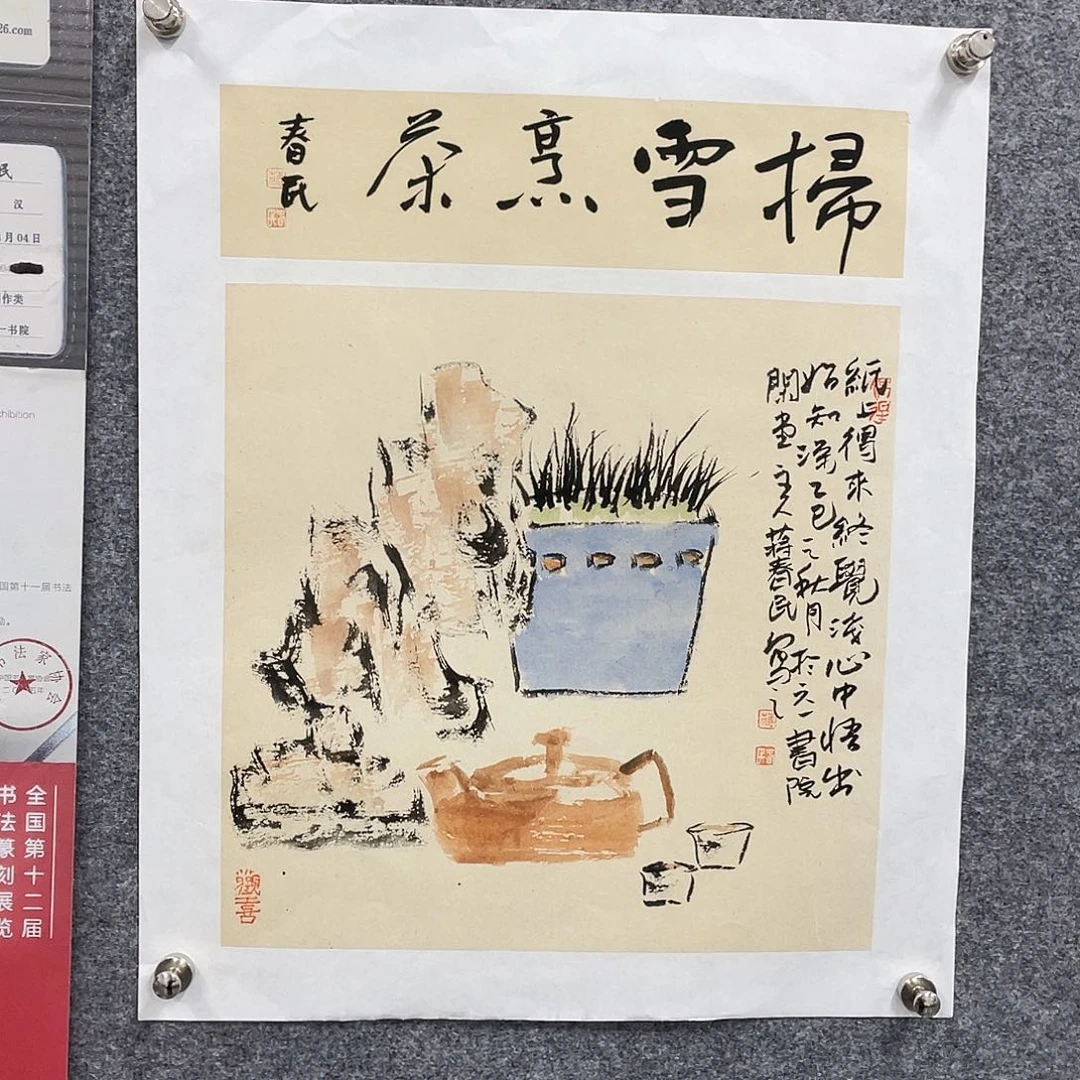 掃雪烹茶
春民
紙上得来終覺淺心中悟出
始知深乙巳之秋月於元一書院
閑堂主人蔣春民寫之
觀喜
26.com
民
汉
月04日
作类
一书院
hibition
国第十一届书法
全国第十二届
书法篆刻展览